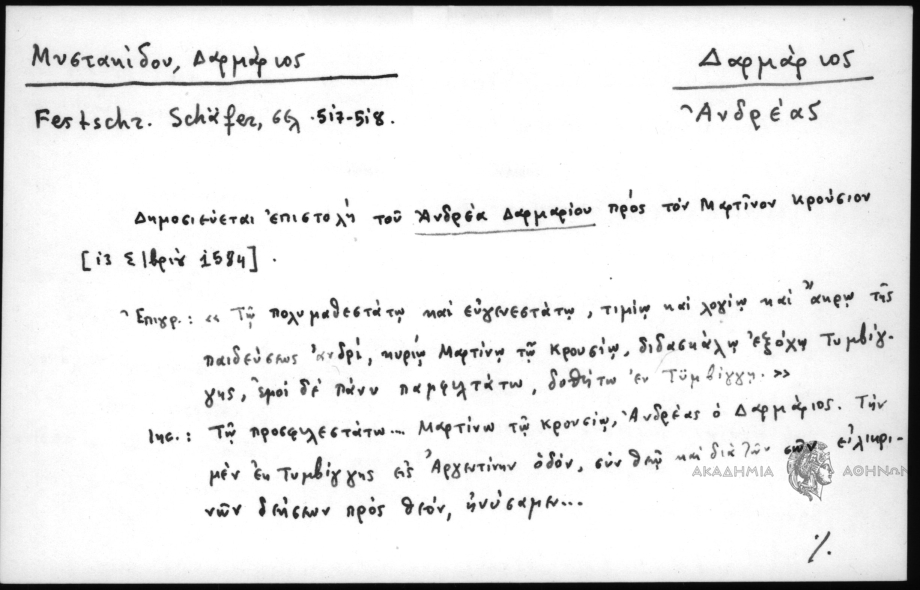 Μυστακίδου, Δαρμάριος
Δαρμάριος
Festschr. Schäfer, σελ. 517-518.
Ἀνδρέας
Δημοσιεύεται ἐπιστολὴ τοῦ Ἀνδρέα Δαρμαρίου πρὸς τὸν Μαρτῖνον Κρούσιον
[13 Σ/βρίου 1584].
Ἐπιγρ.: «Τῷ πολυμαθεστάτῳ καὶ εὐγενεστάτῳ, τιμίῳ καὶ λογίῳ καὶ ἄκρῳ τῆς
παιδεύσεως ἀνδρί, κυρίῳ Μαρτίνῳ τῷ Κρουσίῳ, διδασκάλῳ ἐξόχῳ Τυμβίγ-
γης, ἐμοὶ δὲ πάνυ παμφιλτάτω, δοθήτω ἐν Τυμβίγγῃ.»
Τῷ προσφιλεστάτῳ... Μαρτίνω τῷ Κρουσίῳ, Ἀνδρέας ὁ Δαρμάριος. Τὴν
μὲν ἐκ Τυμβίγγης εἰς Ἀργεντίνην ὁδόν, σὺν θεῷ καὶ διὰ τῶν σῶν εἰλικρι-
νῶν δεήσεων πρὸς θεόν, ἠνύσαμεν...
ΑΚΑΔΗΜΙΑ ΑΘΗΝΩΝ
%.